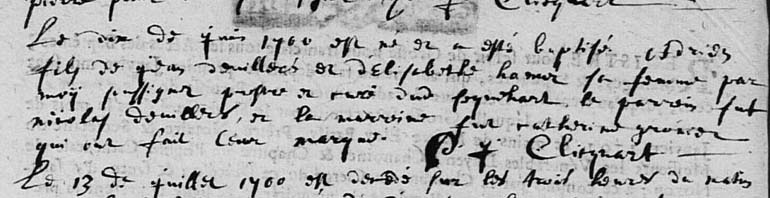 Clicquart
Le dix de juin 1700 est né et a esté baptisé Adrien
fils de jean devillers et d'Elisabethe hamer sa femme par
moy soussigné prestre et curé dud sequehart le parein fut
nicolas devillers, et la marreine fut catherine
qui ont fait leur marque. Clicquart
Le 13 de juillet 1700 est decedé sur les trois heures du matin